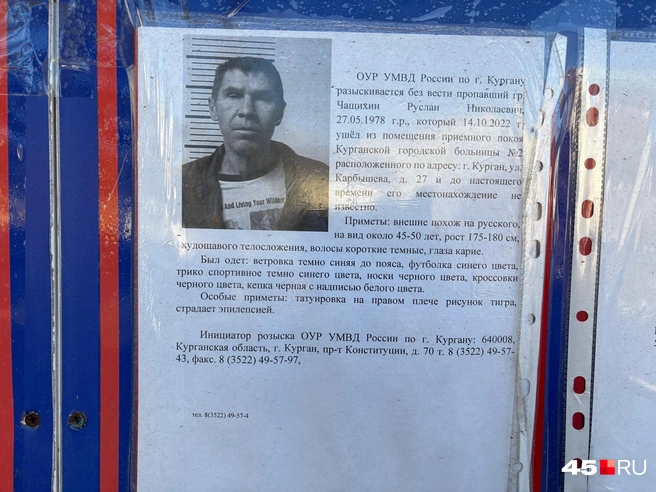 ОУР УМВД России по г. Кургану
разыскивается без вести пропавший гр.
Чащихин Руслан Николаевич,
27.05.1978 г.р., который 14.10.2022 г.
ушёл из помещения приемного покоя
Курганской городской больницы №2
расположенного по адресу: г. Курган, ул.
Карбышева, д. 27 и до настоящего
времени его местонахождение не
известно.
And Living Your Wildest
Приметы: внешне похож на русского,
на вид около 45-50 лет, рост 175-180 см,
худощавого телосложения, волосы короткие темные, глаза карие.
Был одет: ветровка темно синяя до пояса, футболка синего цвета,
трико спортивное темно синего цвета, носки черного цвета, кроссовки
черного цвета, кепка черная с надписью белого цвета.
Особые приметы: татуировка на правом плече рисунок тигра,
страдает эпилепсией.
Инициатор розыска ОУР УМВД России по г. Кургану: 640008,
Курганская область, г. Курган, пр-т Конституции, д. 70 т. 8 (3522) 49-57-
43, факс. 8 (3522) 49-57-97,
тел. 8(3522) 49-57-4
45.RU